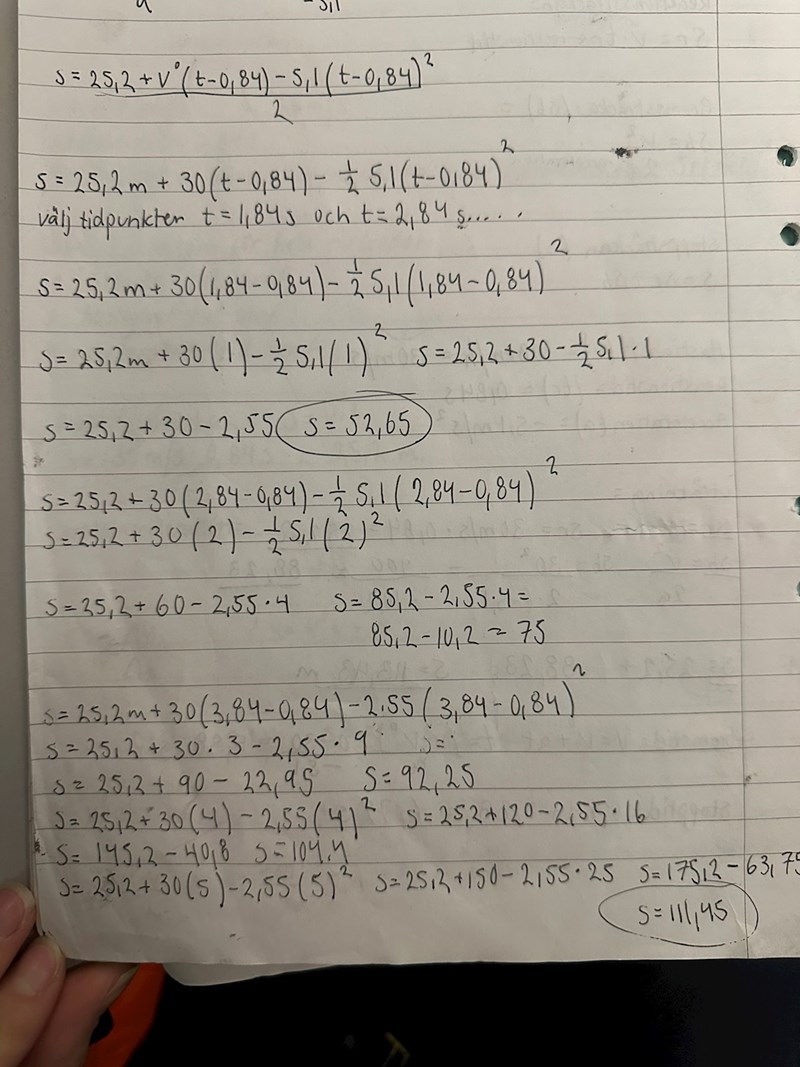 s = 25,2 + v°(t-0,84) - 5,1(t-0,84)²
2
s = 25,2m + 30(t-0,84) - 1/2 5,1(t-0,84)²
välj tidpunkten t = 1,84s och t = 2,84 s.....
s = 25,2m + 30(1,84-0,84) - 1/2 5,1(1,84-0,84)²
s = 25,2m + 30(1) - 1/2 5,1(1)² s = 25,2 + 30 - 1/2 5,1·1
s = 25,2 + 30 - 2,55 s = 52,65
s = 25,2 + 30(2,84-0,84) - 1/2 5,1(2,84-0,84)²
s = 25,2 + 30(2) - 1/2 5,1(2)²
s = 25,2 + 60 - 2,55·4 s = 85,2 - 2,55·4 =
85,2 - 10,2 = 75
s = 25,2m + 30(3,84-0,84) - 2.55(3,84-0,84)²
s = 25,2 + 30·3 - 2,55·9 s=
s = 25,2 + 90 - 22,95 s = 92,25
s = 25,2 + 30(4) - 2,55(4)² s = 25,2 + 120 - 2,55·16
s = 145,2 - 40,8 s = 104.4
s = 25,2 + 30(5) - 2,55(5)² s = 25,2 + 150 - 2,55·25 s = 175,2 - 63,75
s = 111,45